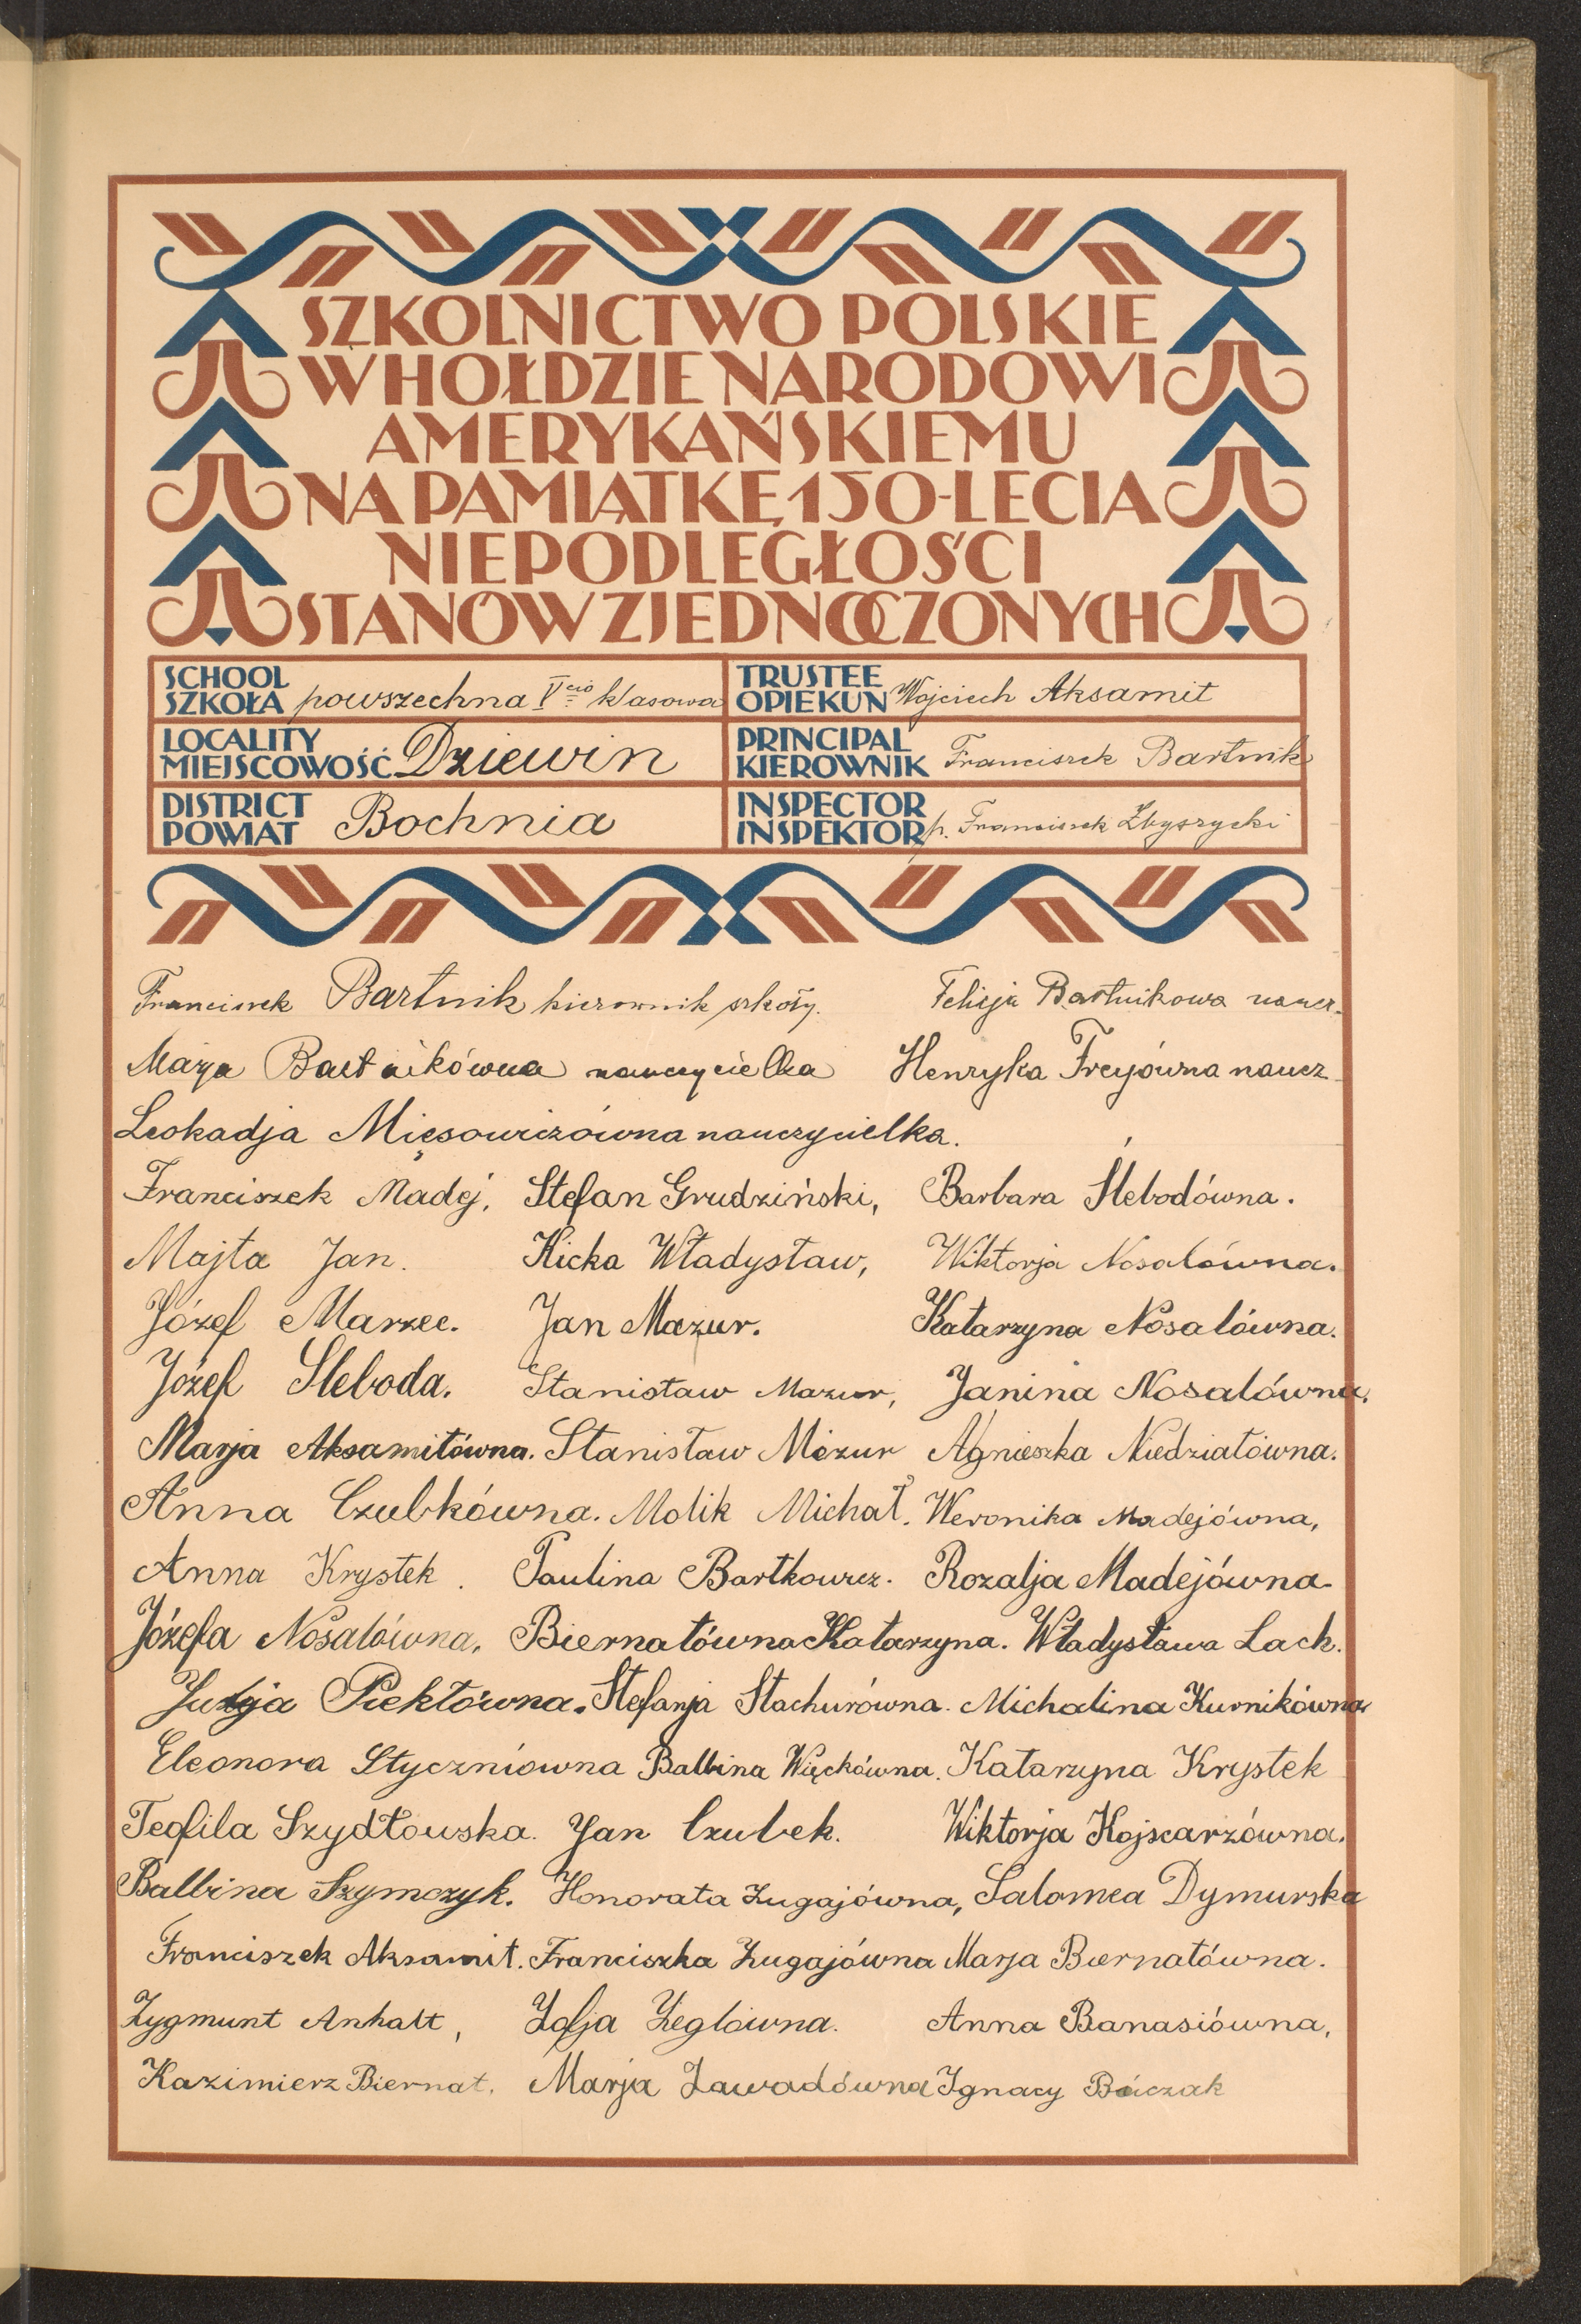 SZKOLNICTWO POLSKIE
W HOŁDZIE NARODOWI
AMERYKAŃSKIEMU
NA PAMIĄTKĘ 150-LECIA
NIEPODLEGŁOŚCI
STANÓW ZJEDNOCZONYCH
SCHOOL
SZKOŁA powszechna V cio klasowa
TRUSTEE
OPIEKUN Wojciech Aksamit
LOCALITY
MIEJSCOWOŚĆ Dziewin
PRINCIPAL
KIEROWNIK Franciszek Bartnik
DISTRICT
POWIAT Bochnia
INSPECTOR
INSPEKTOR p. Franciszek Zbyszycki
Franciszek Bartnik kierownik szkoły. Felicja Bartnikowa naucz.
Marja Bartnikówna nauczycielka Henryka Freyówna naucz
Leokadja Mięsowiczówna nauczycielka.
Franciszek Madej, Stefan Grudziński, Barbara Slebodówna.
Majta Jan. Kicka Władysław, Wiktorja Nosalówna.
Józef Marzec. Jan Mazur. Katarzyna Nosalówna.
Józef Sleboda. Stanisław Mazur, Janina Nosalówna.
Marja Aksamitówna. Stanisław Mazur Agnieszka Niedziałówna.
Anna Czubkówna. Molik Michał. Weronika Madejówna,
Anna Krystek. Paulina Bartkowicz. Rozalja Madejówna.
Józefa Nosalówna, Biernatówna Katarzyna. Władysława Lach.
Julja Piekłówna. Stefanja Stachurówna. Michalina Kurnikówna
Eleonora Styczniówna Balbina Więckówna. Katarzyna Krystek
Teofila Szydłowska. Jan Czubek. Wiktorja Kojscarzówna.
Balbina Szymczyk. Honorata Zugajówna, Salomea Dymurska
Franciszek Aksamit. Franciszka Zugajówna Marja Biernatówna.
Zygmunt Anhalt, Zofja Zeglówna. Anna Banasiówna,
Kazimierz Biernat. Marja Zawadówna Ignacy